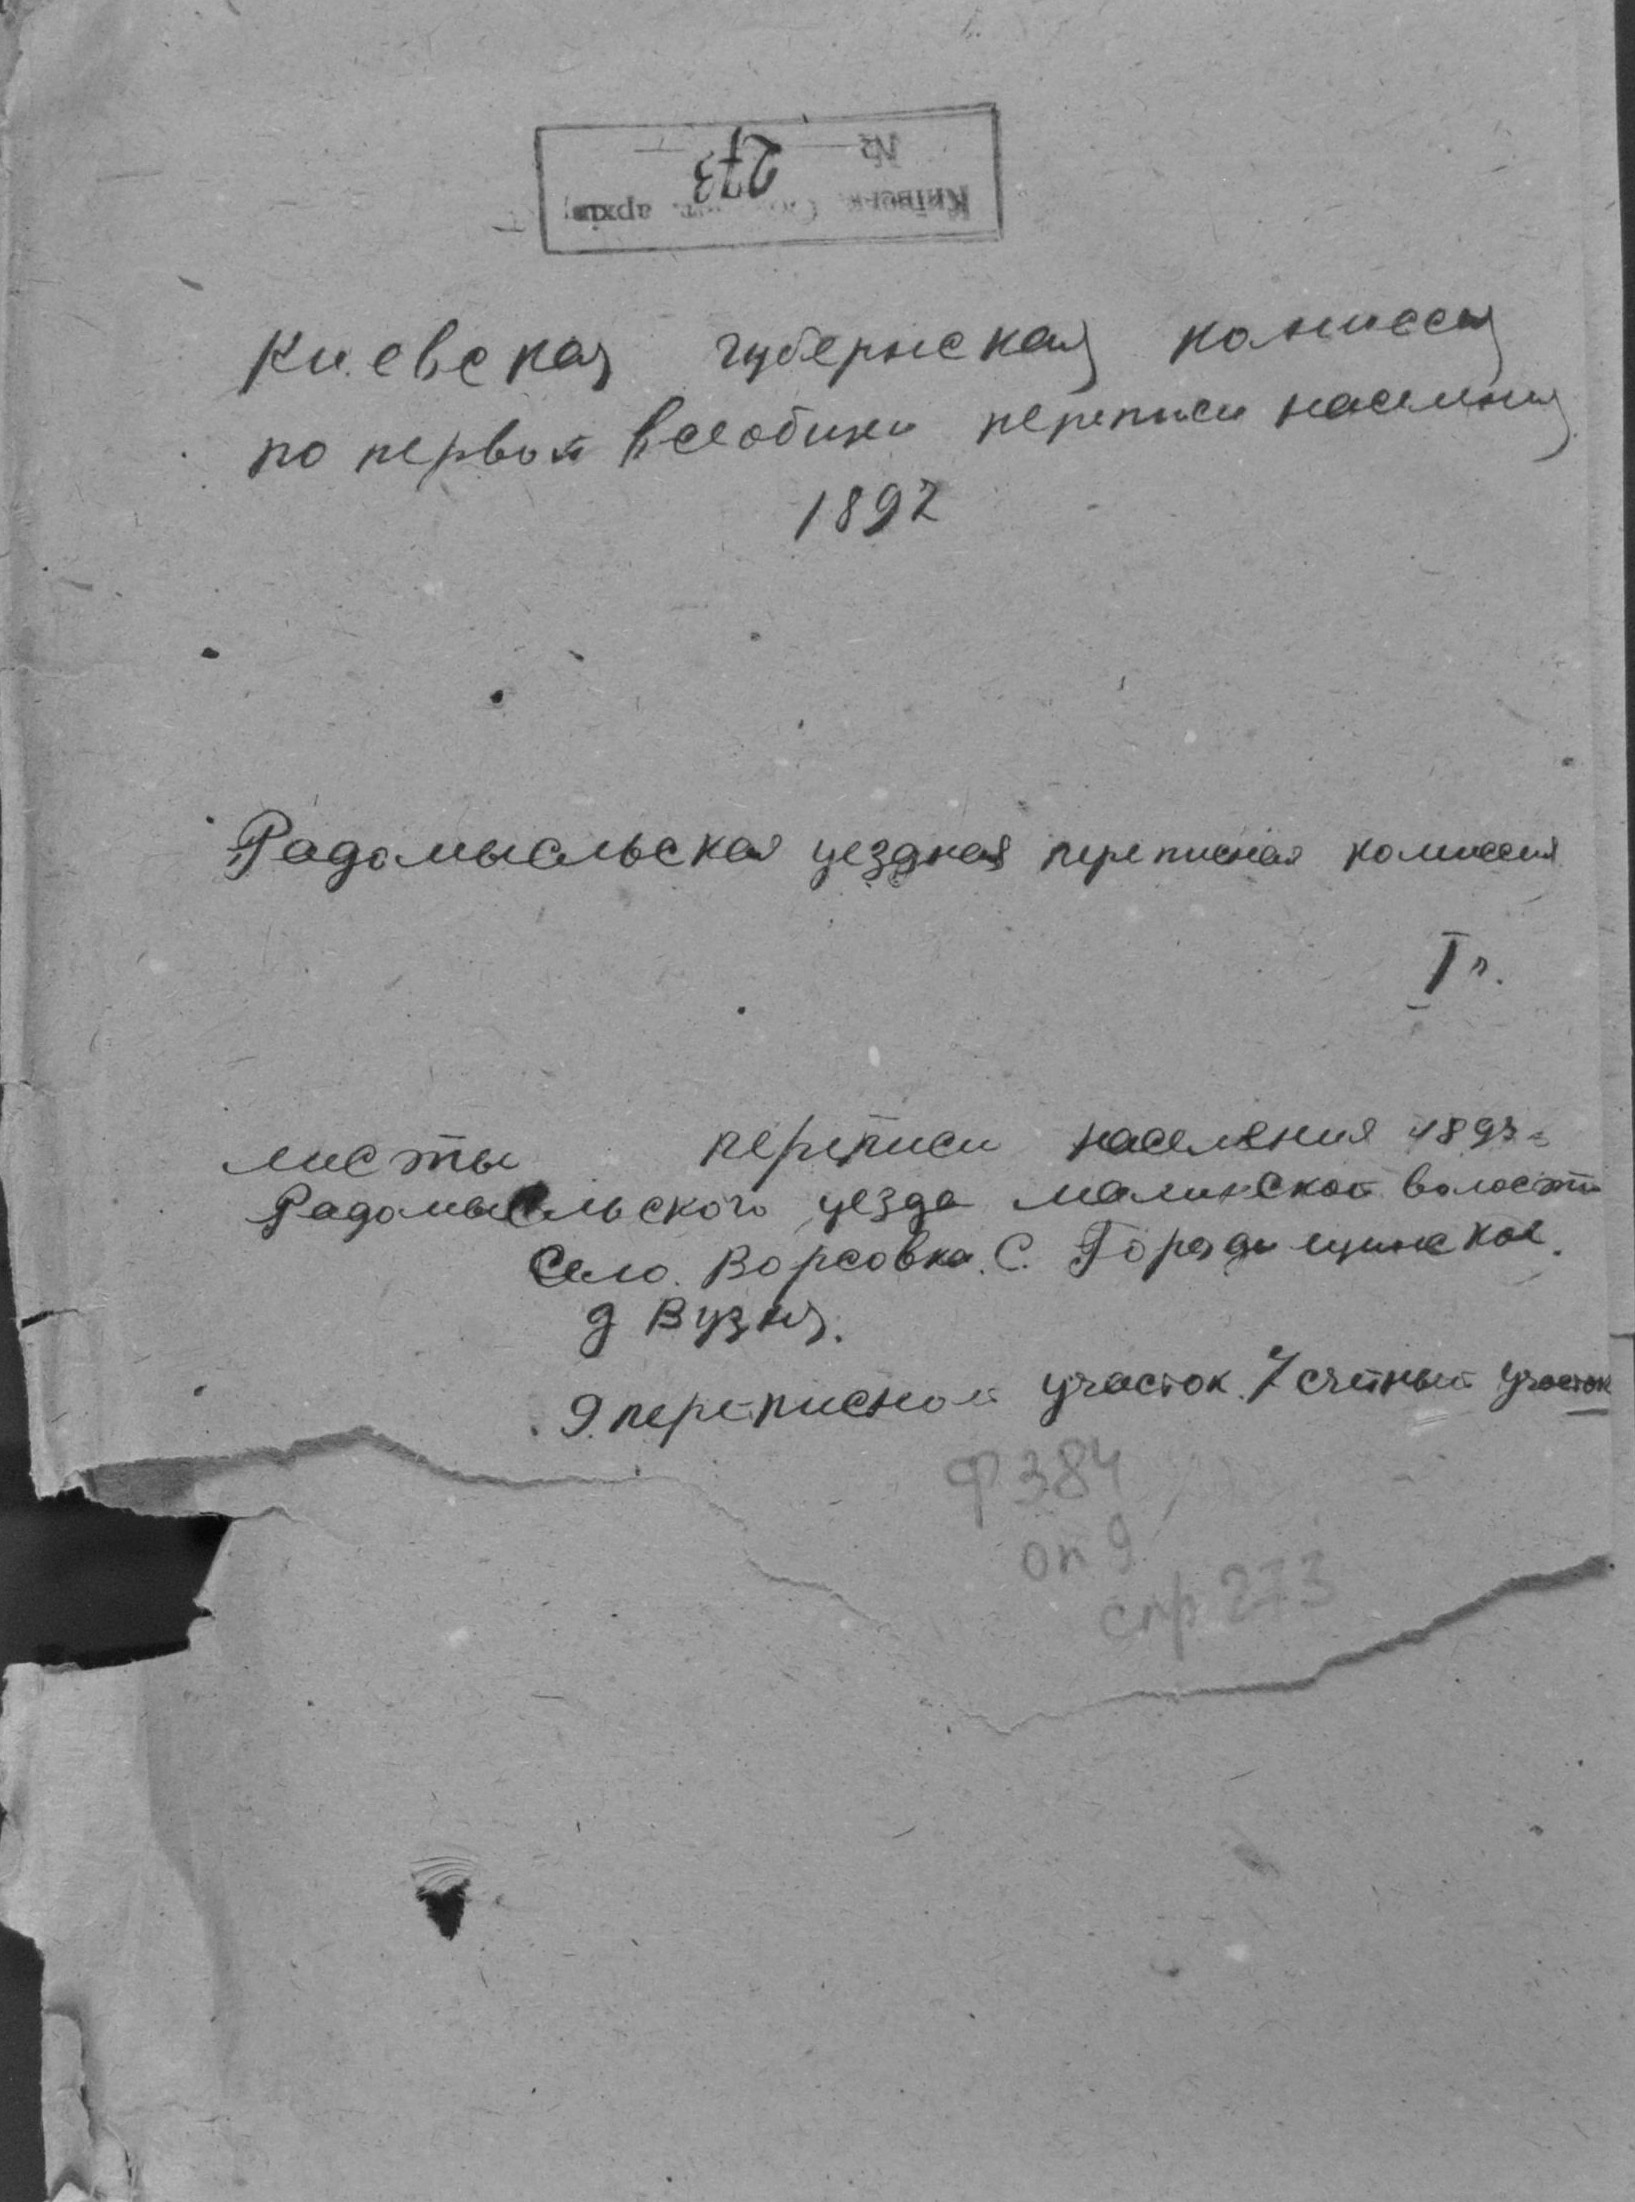 № 273
Київськ. архів
Киевская губернская комиссия
по первой всеобщей переписи населения
1897
Радомысльская уездная переписная комиссия
I п.
листы переписи населения 1897 г
Радомысльского уезда малинской волости
Село Ворсовка. С. Городищинское.
д Вузня.
9. переписной участок. 7 счетный участок
Ф 384
оп 9
спр 273